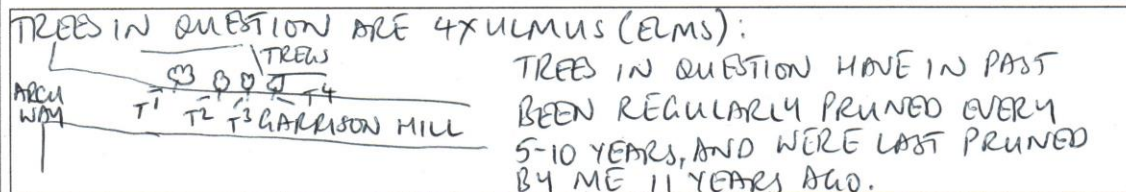 TREES IN QUESTION ARE 4X ULMUS (ELMS):
TREWS
ARCH WAY
T1 T2 T3 T4
GARRISON HILL
TREES IN QUESTION HAVE IN PAST
BEEN REGULARLY PRUNED EVERY
5-10 YEARS, AND WERE LAST PRUNED
BY ME 11 YEARS AGO.